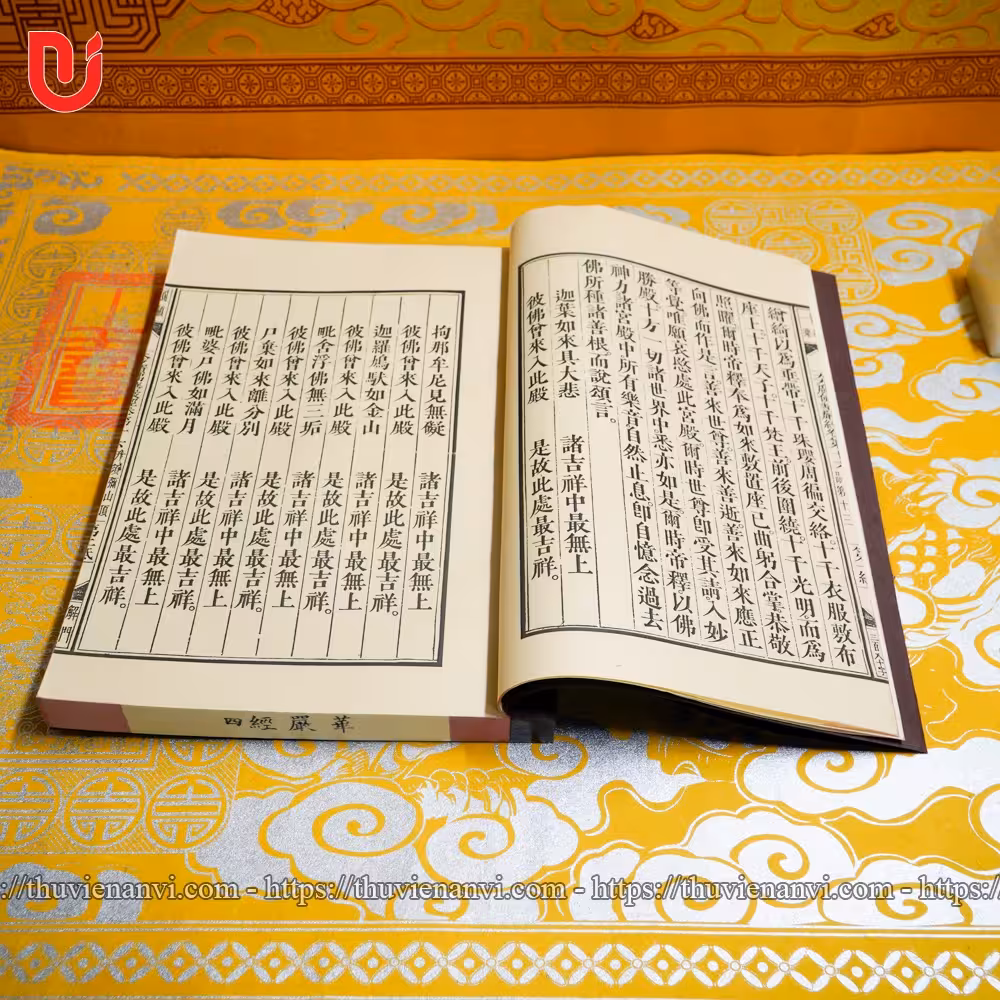 繒綺以為垂帶。十千珠瓔周徧交絡十千衣服敷布
座上十千天子十千梵王前後圍繞。十千光明。而為
照曜爾時帝釋奉為如來敷置座已曲躬合掌恭敬
向佛而作是言善來世尊善來善逝善來如來應正
等覺唯願哀愍處此宮殿爾時世尊即受其請入妙
勝殿十方一切諸世界中悉亦如是爾時帝釋以佛
神力諸宮殿中所有樂音自然止息即自憶念過去
佛所種諸善根。而說頌言。
迦葉如來具大悲 諸吉祥中最無上
彼佛曾來入此殿 是故此處最吉祥。
拘那牟尼見無礙 諸吉祥中最無上
彼佛曾來入此殿 是故此處最吉祥。
迦羅鳩馱如金山 諸吉祥中最無上
彼佛曾來入此殿 是故此處最吉祥。
毗舍浮佛無三垢 諸吉祥中最無上
彼佛曾來入此殿 是故此處最吉祥。
尸棄如來離分別 諸吉祥中最無上
彼佛曾來入此殿 是故此處最吉祥。
毗婆尸佛如滿月 諸吉祥中最無上
彼佛曾來入此殿 是故此處最吉祥。
解門
華嚴經四
https://thuvienanvi.com - https://thuvienanvi.com - https://thuvienanvi.com - https://